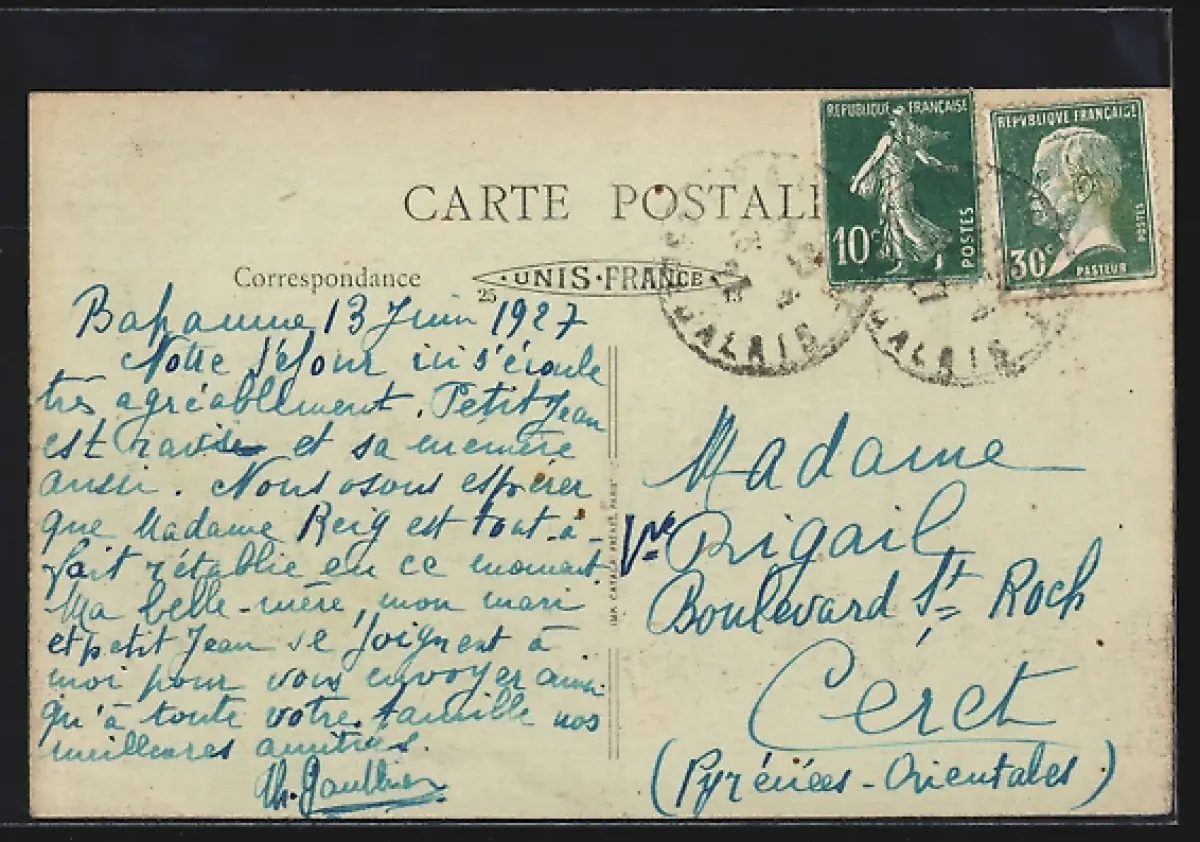 CARTE POSTALE
REPUBLIQUE FRANÇAISE
10c
POSTES
REPVBLIQVE FRANÇAISE
30c
POSTES
PASTEUR
CALAIS
CALAIS
Correspondance
25 UNIS-FRANCE 13
Bapaume, 13 Juin 1927
Notre séjour ici s'écoule
très agréablement. Petit Jean
est ravi et sa mémère
aussi. Nous osons espérer
que Madame Reig est tout-à-
fait rétablie en ce moment.
Ma belle-mère, mon mari
et petit Jean se joignent à
moi pour vous envoyer ainsi
qu'à toute votre famille nos
meilleures amitiés.
Th. Gaulthier
IMP. CATALA FRÈRES, PARIS
Madame
Vve Rigail
Boulevard St Roch
Ceret
(Pyrénées-Orientales)